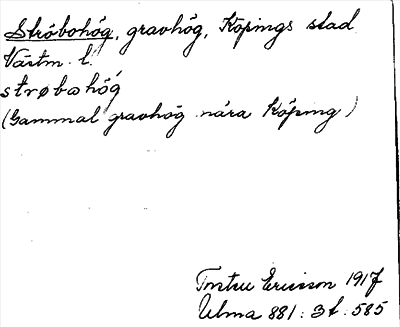 Ströbohög, gravhög, Köpings stad
Västm. l.
strøbohög
(Gammal gravhög nära Köping)
Torsten Ericsson 1917
Ulma 881:3t:585